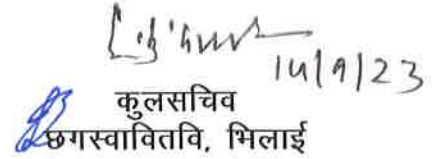 14/9/23
कुलसचिव
छगस्वावितवि, भिलाई